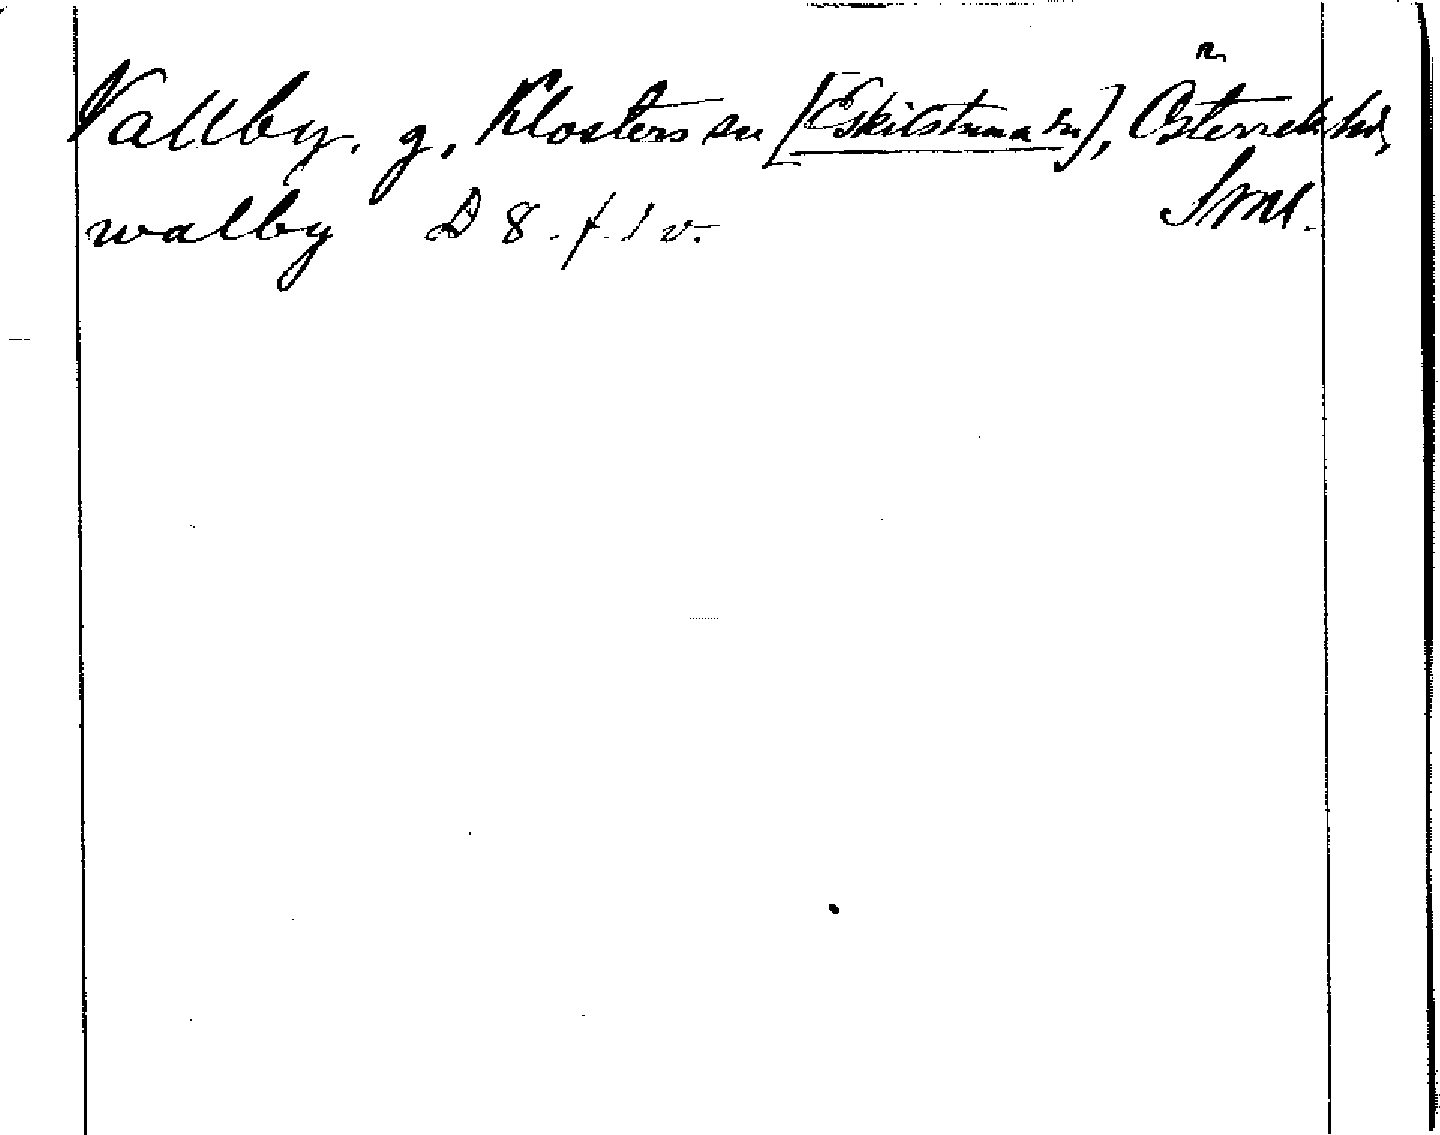 Vallby, g, Klosters sn [Eskilstuna sn], Österrek hd,
Srml.
walby D 8. f. 1 v.